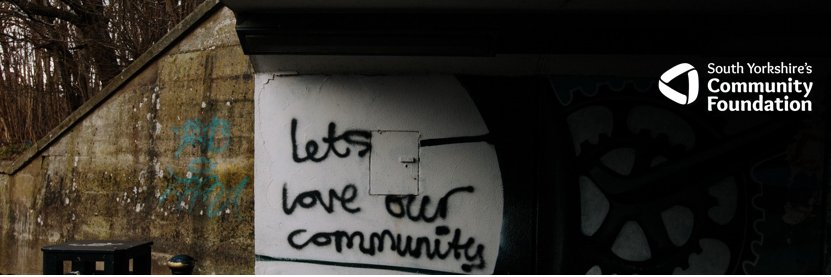 South Yorkshire's
Community
Foundation
lets
love our
community